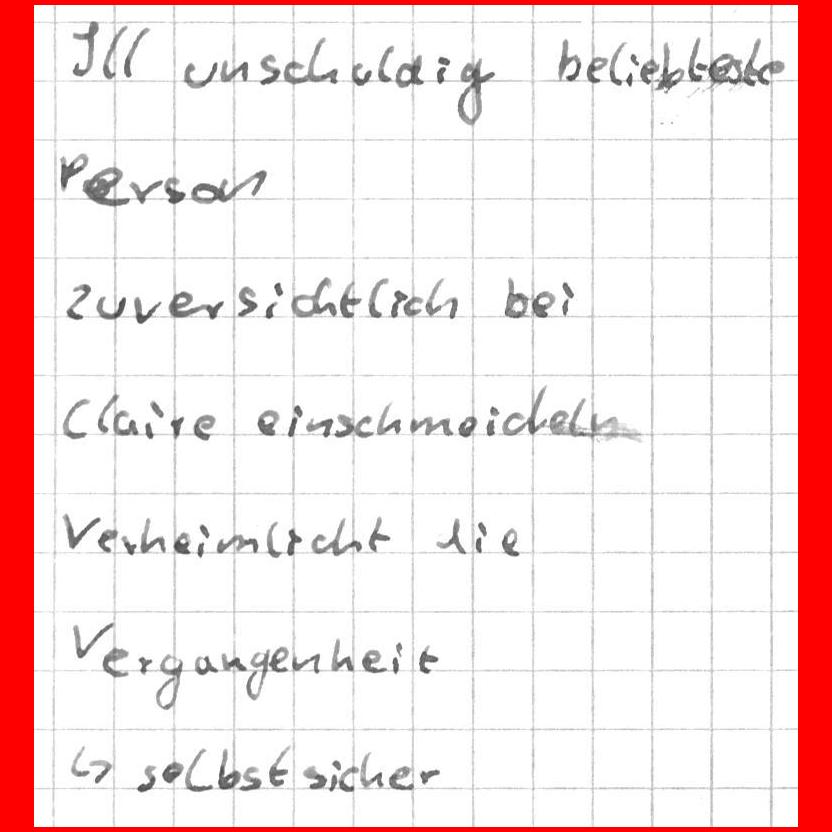 Ill unschuldig beliebteste
Person
zuversichtlich bei
Claire einschmeicheln
Verheimlicht die
Vergangenheit
↳ selbstsicher